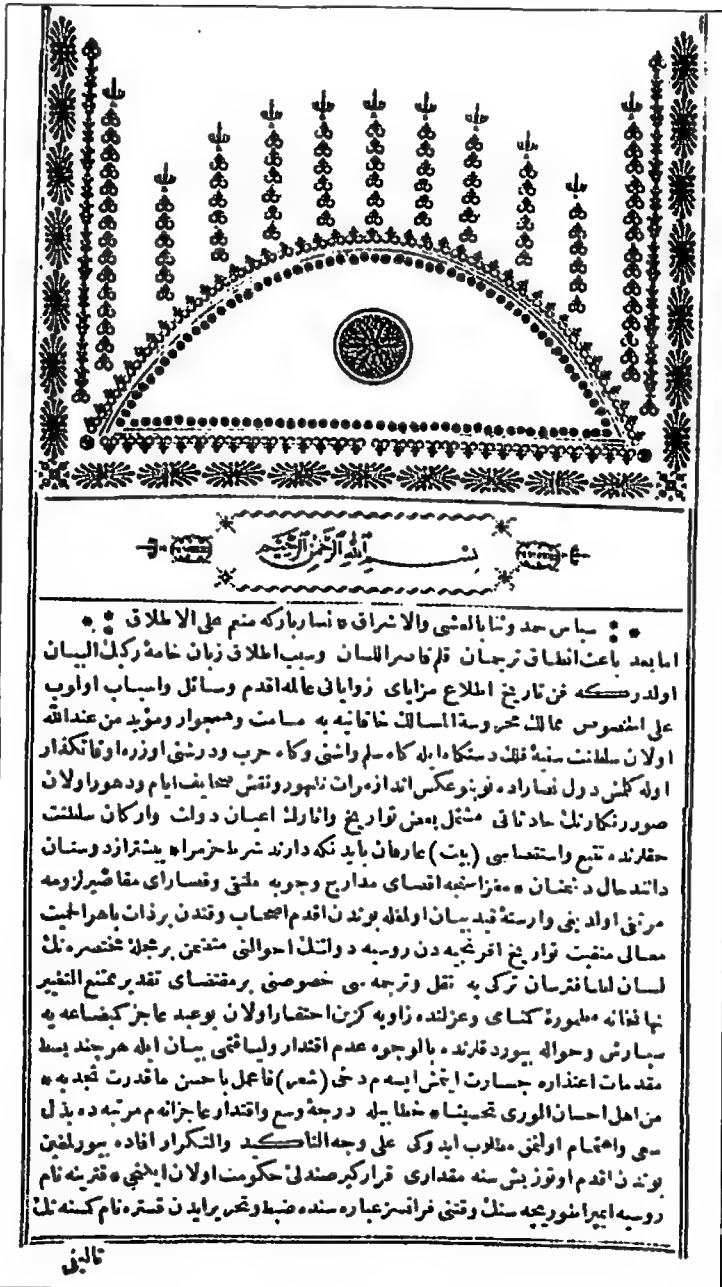 بسم الله الرحمن الرحيم
سپاس حمد وثنا بالعشی والاشراق * نسار بارکه منعم علی الاطلاق
اما بعد باعث انطاق ترجمان قلم قاصر اللسان وسبب اطلاق زبان خامهٔ رکیك البیان
اولدرکه فن تاریخ اطلاع مزایای زوایای عالمه اقدم وسائل واسباب اولوب
علی الخصوص ممالك محروسة المسالك خاقانیه یه مسامت وهمجوار ومؤید من عند الله
اولان سلطنت سنیهٔ فلك دستکاه ایله کاه سلم واشتی وکاه حرب ودرشتی اوزره اوقاتکذار
اوله کلمش دول نصاراده نوبنو عکس انداز مرات ظهور ونقش صحایف ایام ودهور اولان
صور رنکارنك حادثاتی مشتمل بعض تواریخ واثارك اعیان دولت وارکان سلطنت
حقلرنده تتبع واستقصاسی (بیت) عارفان باید نکه دارند شرط حزمرا * بیشتر از دوستان
دانند حال دشمنان * مغزاسنجه اقصای مدارج وجوبه ملتقی وقصارای مقاصیر لزومه
مرتقی اولدیغی وارستهٔ قید بیان اولمغله بوندن اقدم اصحاب وقتدن بر ذات باهر الحمیت
معالی منقبت تواریخ افرنجیه دن روسیه دولتنك احوالنی متضمن بر مجلهٔ مختصره نك
لسان لطافترسان ترکی یه نقل وترجمه سی خصوصنی بر مقتضای تقدیر ممتنع التغییر
نهانخانه مطمورهٔ کمنامی وعزلتده زاویه کزین احتقار اولان بو عبد عاجز کم بضاعه یه
سپارش وحواله بیوردقلرنده بالوجوه عدم اقتدار ولیاقتمی بیان ایله هر چند بسط
مقدمات اعتذاره جسارت ایتمش ایسه م دخی (شعر) فاعمل باحسن ما قدرت تجد به *
من اهل احسان الوری تحسینا * خطابیله درجهٔ وسع واقتدار عاجزانه م مرتبه ده بذل
سعی واهتمام اولنمق مطلوب ایدوکی علی وجه التأکید والتکرار افاده بیورلمغین
بوندن اقدم اوتوز بش سنه مقداری قرارکیر صندلئ حکومت اولان ایکنجی * قترینه نام
روسیه ایمپراطوریچه سنك وقتنی فرانسز عباره سنده ضبط وتحریر ایدن قستره نام کمسنه نك
تالیفی